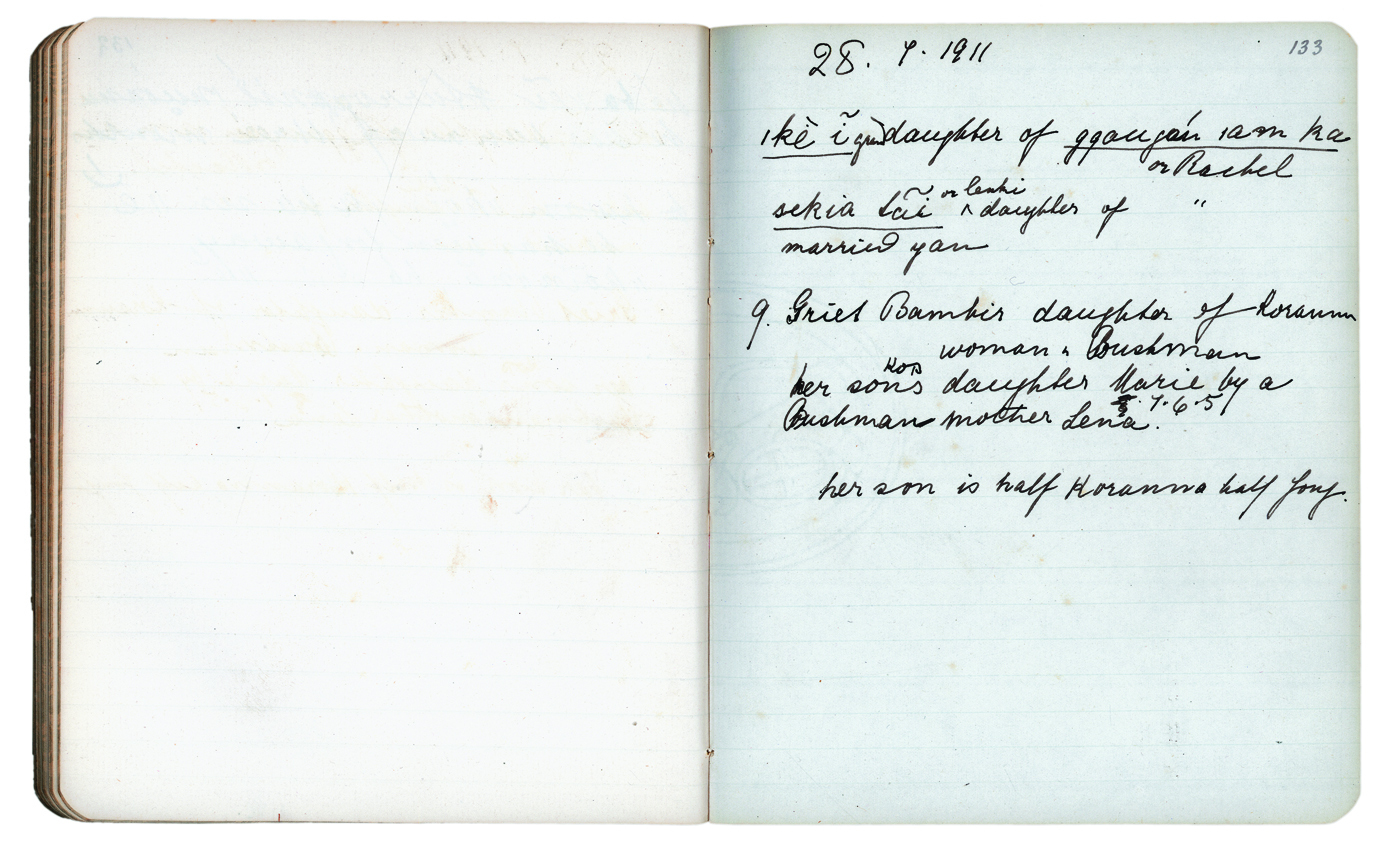 133
28. 7. 1911
ıkē ĩ grand daughter of ggaugáń ıam ka
or Rachel
sekia tãi ^ or lenki daughter of "
married yan
9. Griet Bambir daughter of Koranna
woman & Bushman
her son's Kos daughter Marie by a
Bushman mother Lena. 7.6.5
her son is half Koranna half